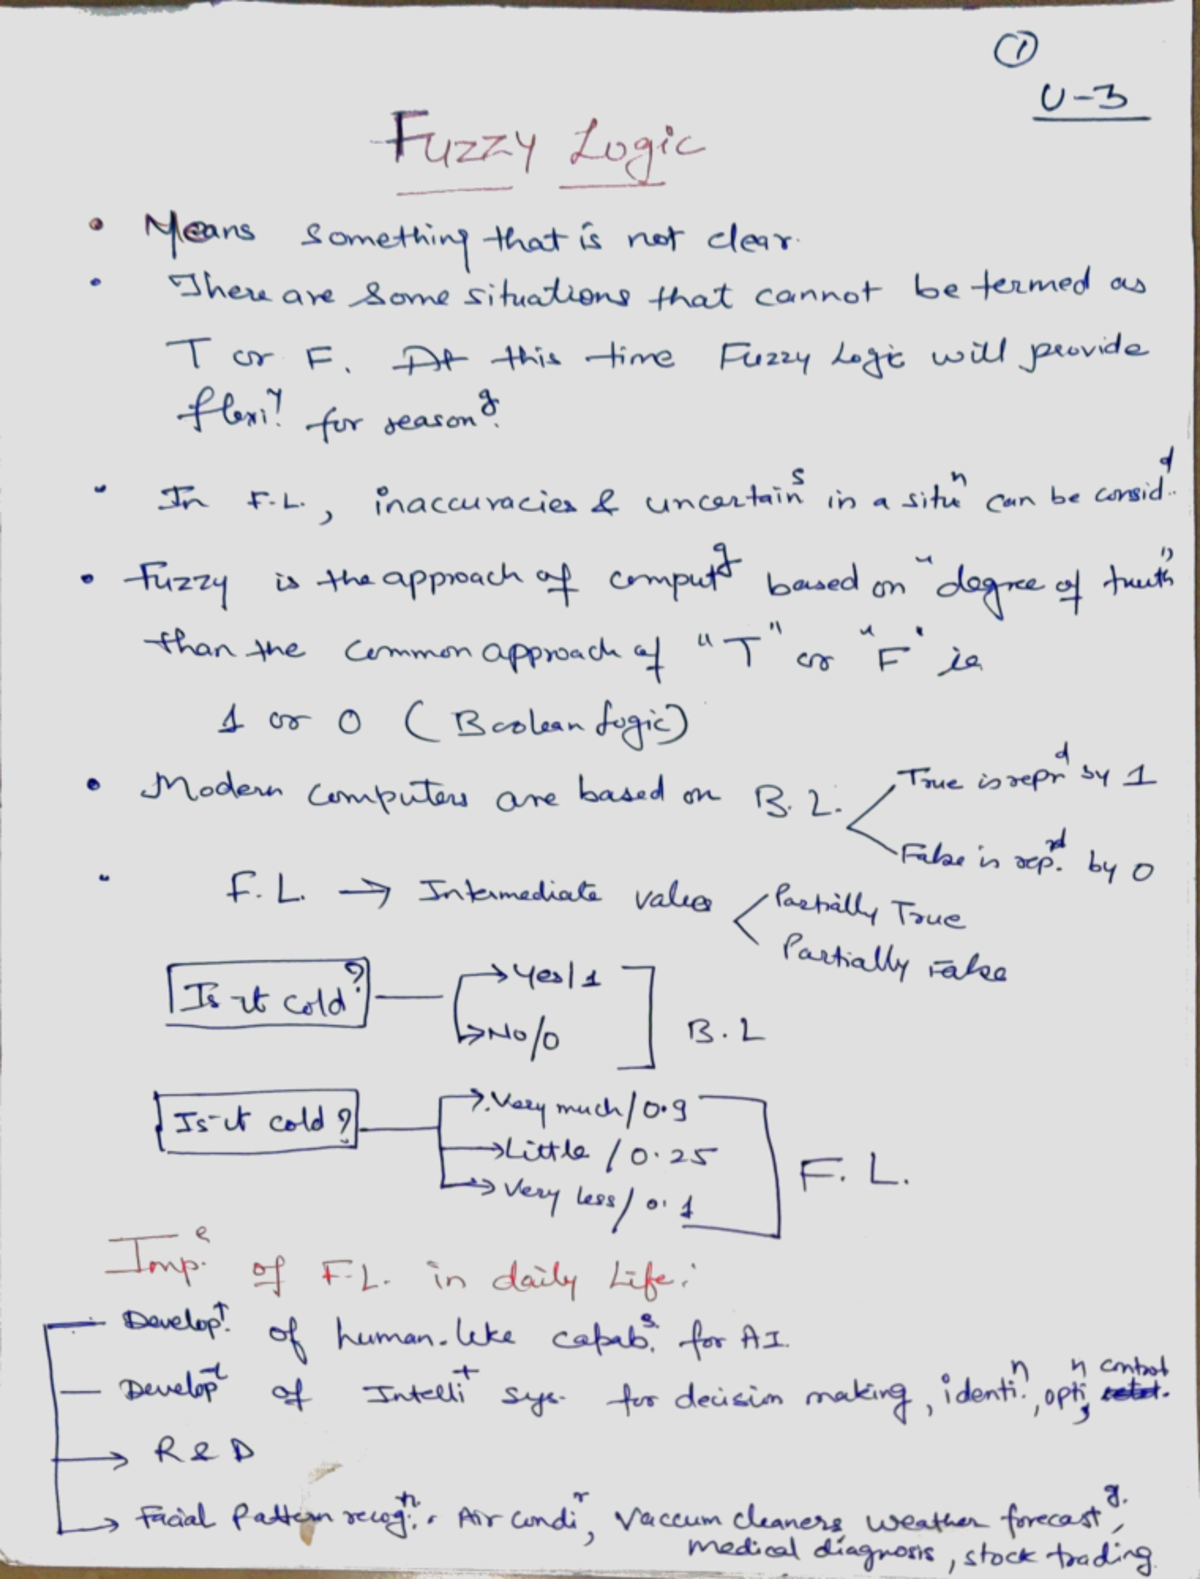 ①
U-3
Fuzzy Logic
• Means something that is not clear.
• There are some situations that cannot be termed as
T or F. At this time Fuzzy Logic will provide
flexi.y for reasong.
• In F.L., inaccuracies & uncertains in a situn can be consid.d
• Fuzzy is the approach of computg based on "degree of truth"
than the common approach of "T" or "F" ie
1 or 0 (Boolean Logic)
• Modern computers are based on B.L.
True is reprd by 1
False is rep.rd by 0
• F.L. → Intermediate values
Partially True
Partially False
Is it cold?
Yes/1
No/0
B.L
Is it cold?
Very much/0.9
Little/0.25
Very less/0.1
F.L.
Imp.e of F.L. in daily Life:
Develop.t of human-like capab.s for AI.
Developt of Intellit sys. for decision making, identi.n, optin, control
→ R & D
→ Facial Pattern recog.n, Air condir, Vaccum cleaners, weather forecastg.,
medical diagnosis, stock trading.